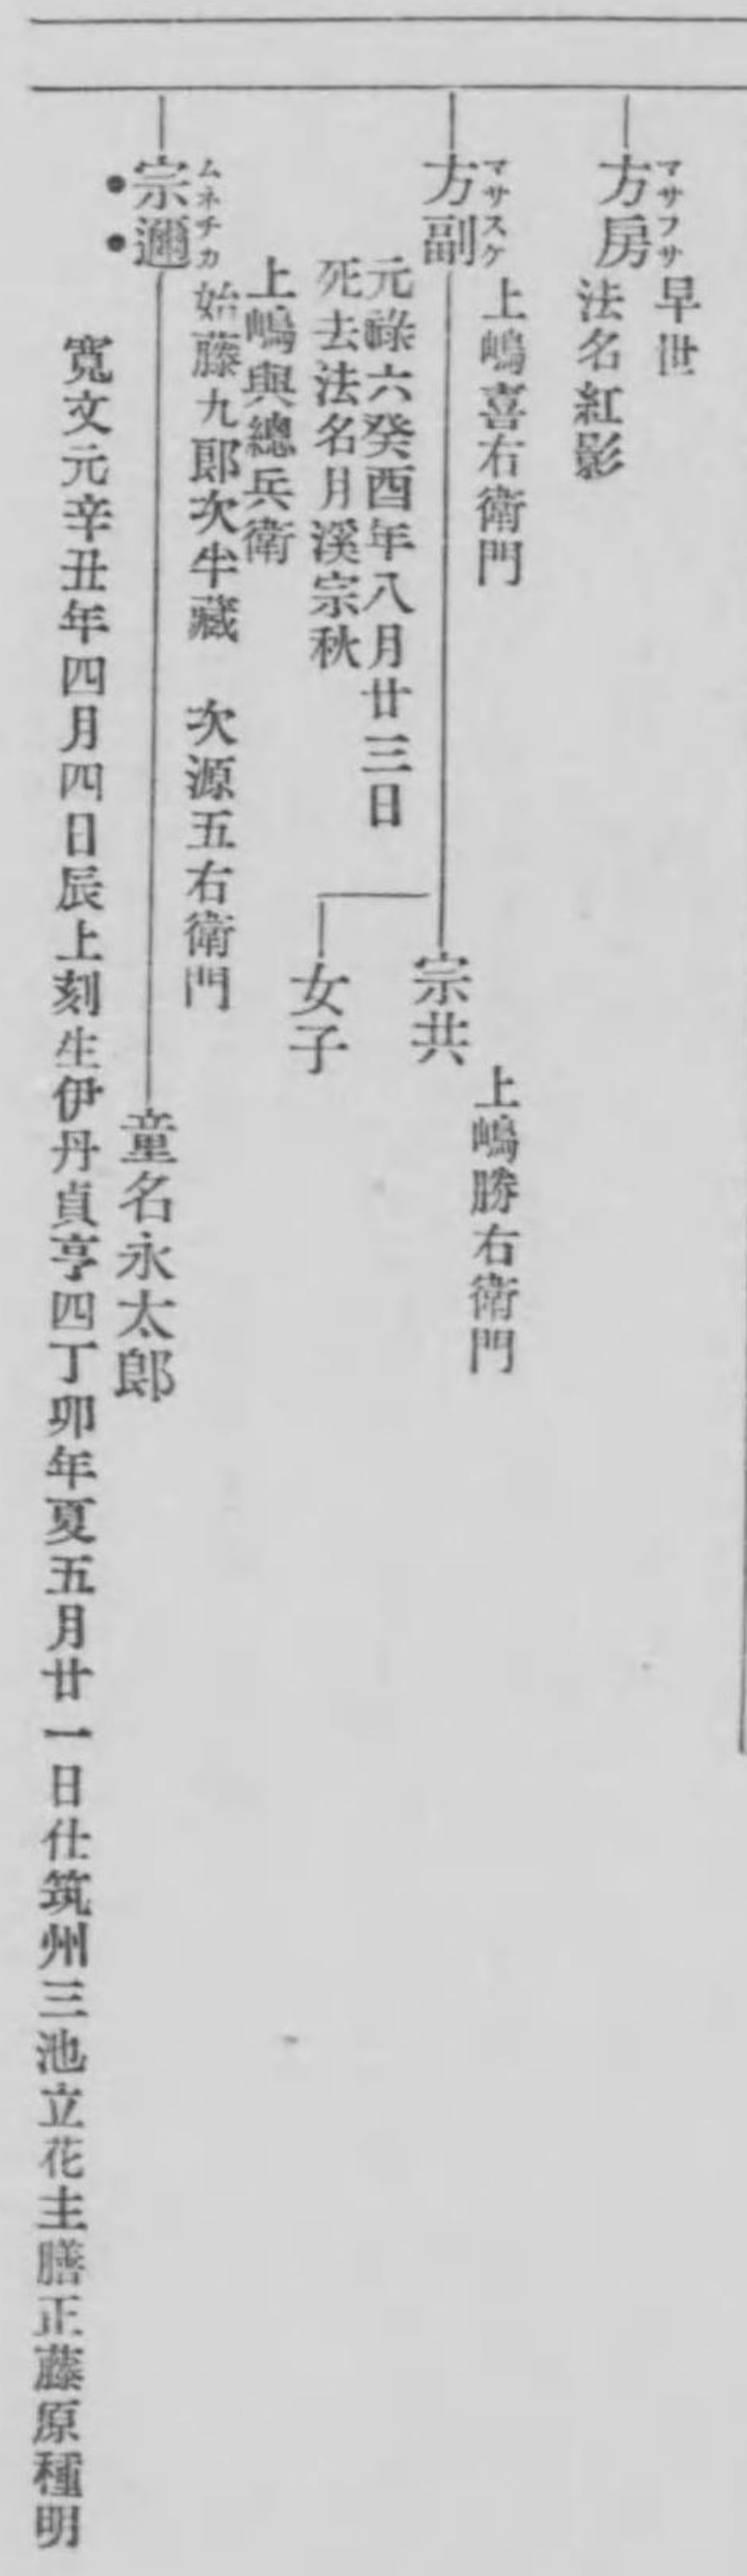 マサフサ
方房
早世
法名紅影
マサスケ
方副
上嶋喜右衛門
元祿六癸酉年八月廿三日
死去法名月溪宗秋
宗共
上嶋勝右衛門
女子
ムネチカ
宗邇
上嶋與總兵衛
始藤九郎次半藏　次源五右衛門
童名永太郎
寬文元辛丑年四月四日辰上刻生伊丹貞享四丁卯年夏五月廿一日仕筑州三池立花主膳正藤原種明